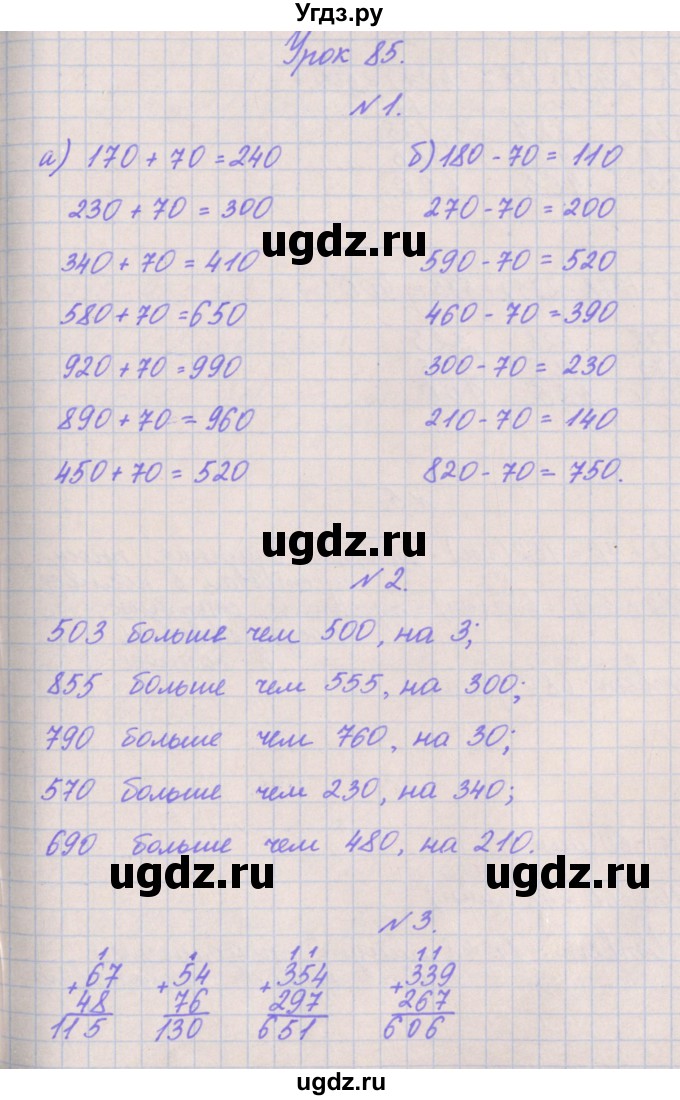 Угдз.ру
Урок 85.
№1.
а) 170 + 70 = 240
230 + 70 = 300
340 + 70 = 410
580 + 70 = 650
920 + 70 = 990
890 + 70 = 960
450 + 70 = 520
б) 180 - 70 = 110
270 - 70 = 200
590 - 70 = 520
460 - 70 = 390
300 - 70 = 230
210 - 70 = 140
820 - 70 = 750.
ugdz.ru
ugdz.ru
№2.
503 больше чем 500, на 3;
855 больше чем 555, на 300;
790 больше чем 760, на 30;
570 больше чем 230, на 340;
690 больше чем 480, на 210.
ugdz.ru ugdz.ru
№3.
1 1 11 11
+67 +54 +354 +339
48 76 297 267
115 130 651 606
ugdz.ru